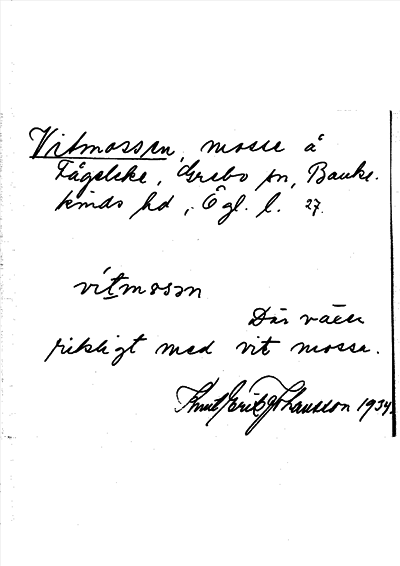 Vitmossen, mosse å
Fågeleke, Grebo sn, Banke-
kinds hd, Ögl. l. 27.
vítmosən
Där växer
rikligt med vit mossa.
Knut Erik Johansson 1934.